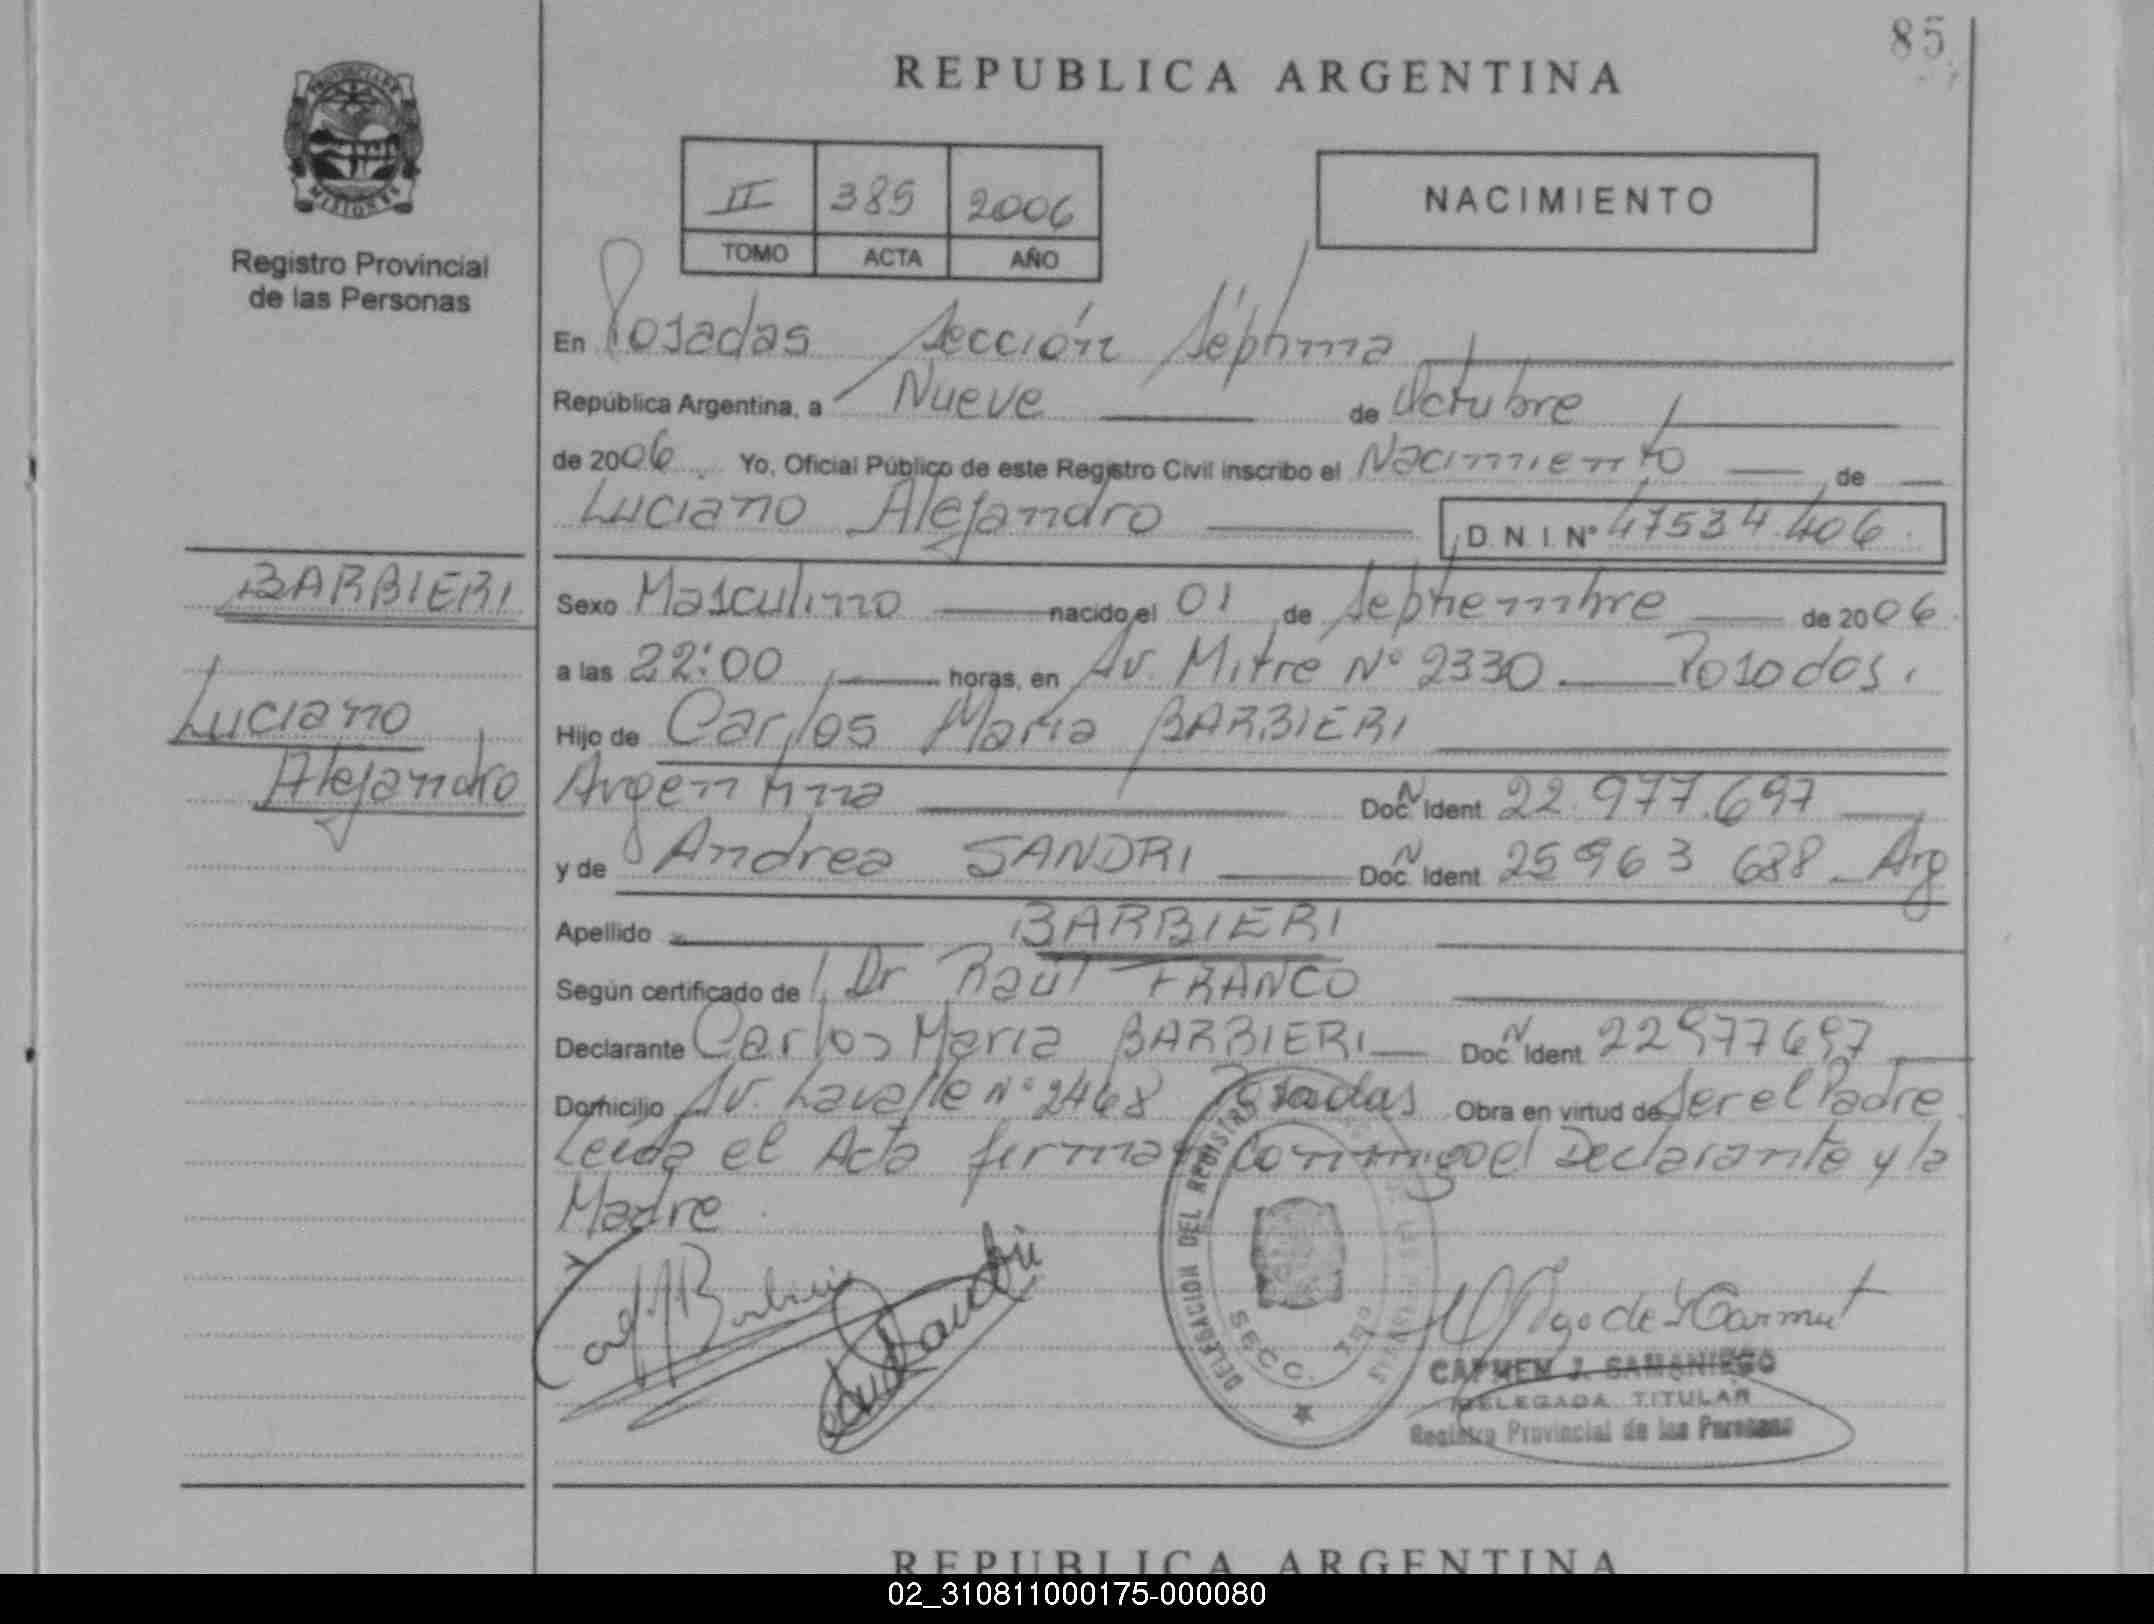 85
REPUBLICA ARGENTINA
PROVINCIA DE
MISIONES
Registro Provincial
de las Personas
II 385 2006
TOMO ACTA AÑO
NACIMIENTO
En Posadas Sección Séptima
República Argentina, a Nueve de Octubre
de 2006. Yo, Oficial Público de este Registro Civil inscribo el Nacimiento de
Luciano Alejandro D.N.I. Nº 47534.406.
BARBIERI
Luciano
Alejandro
Sexo Masculino nacido el 01 de Septiembre de 2006.
a las 22:00 horas, en Av. Mitre Nº 2330 Posadas.
Hijo de Carlos Maria BARBIERI
Argentina Doc N Ident 22.977.697
y de Andrea SANDRI Doc. N Ident 25963 688 Arg
Apellido BARBIERI
Según certificado de Dr Raúl FRANCO
Declarante Carlos Maria BARBIERI Doc. N Ident. 22977697
Domicilio Av. Lavalle Nº 2468 Posadas Obra en virtud de Ser el Padre
Leida el Acta firman conmigo el Declarante y la
Madre.
DELEGACION DEL REGISTRO
SECC. 7mo
CARMEN J. SAMANIEGO
DELEGADA TITULAR
Registro Provincial de las Personas
REPUBLICA ARGENTINA
02_310811000175-000080